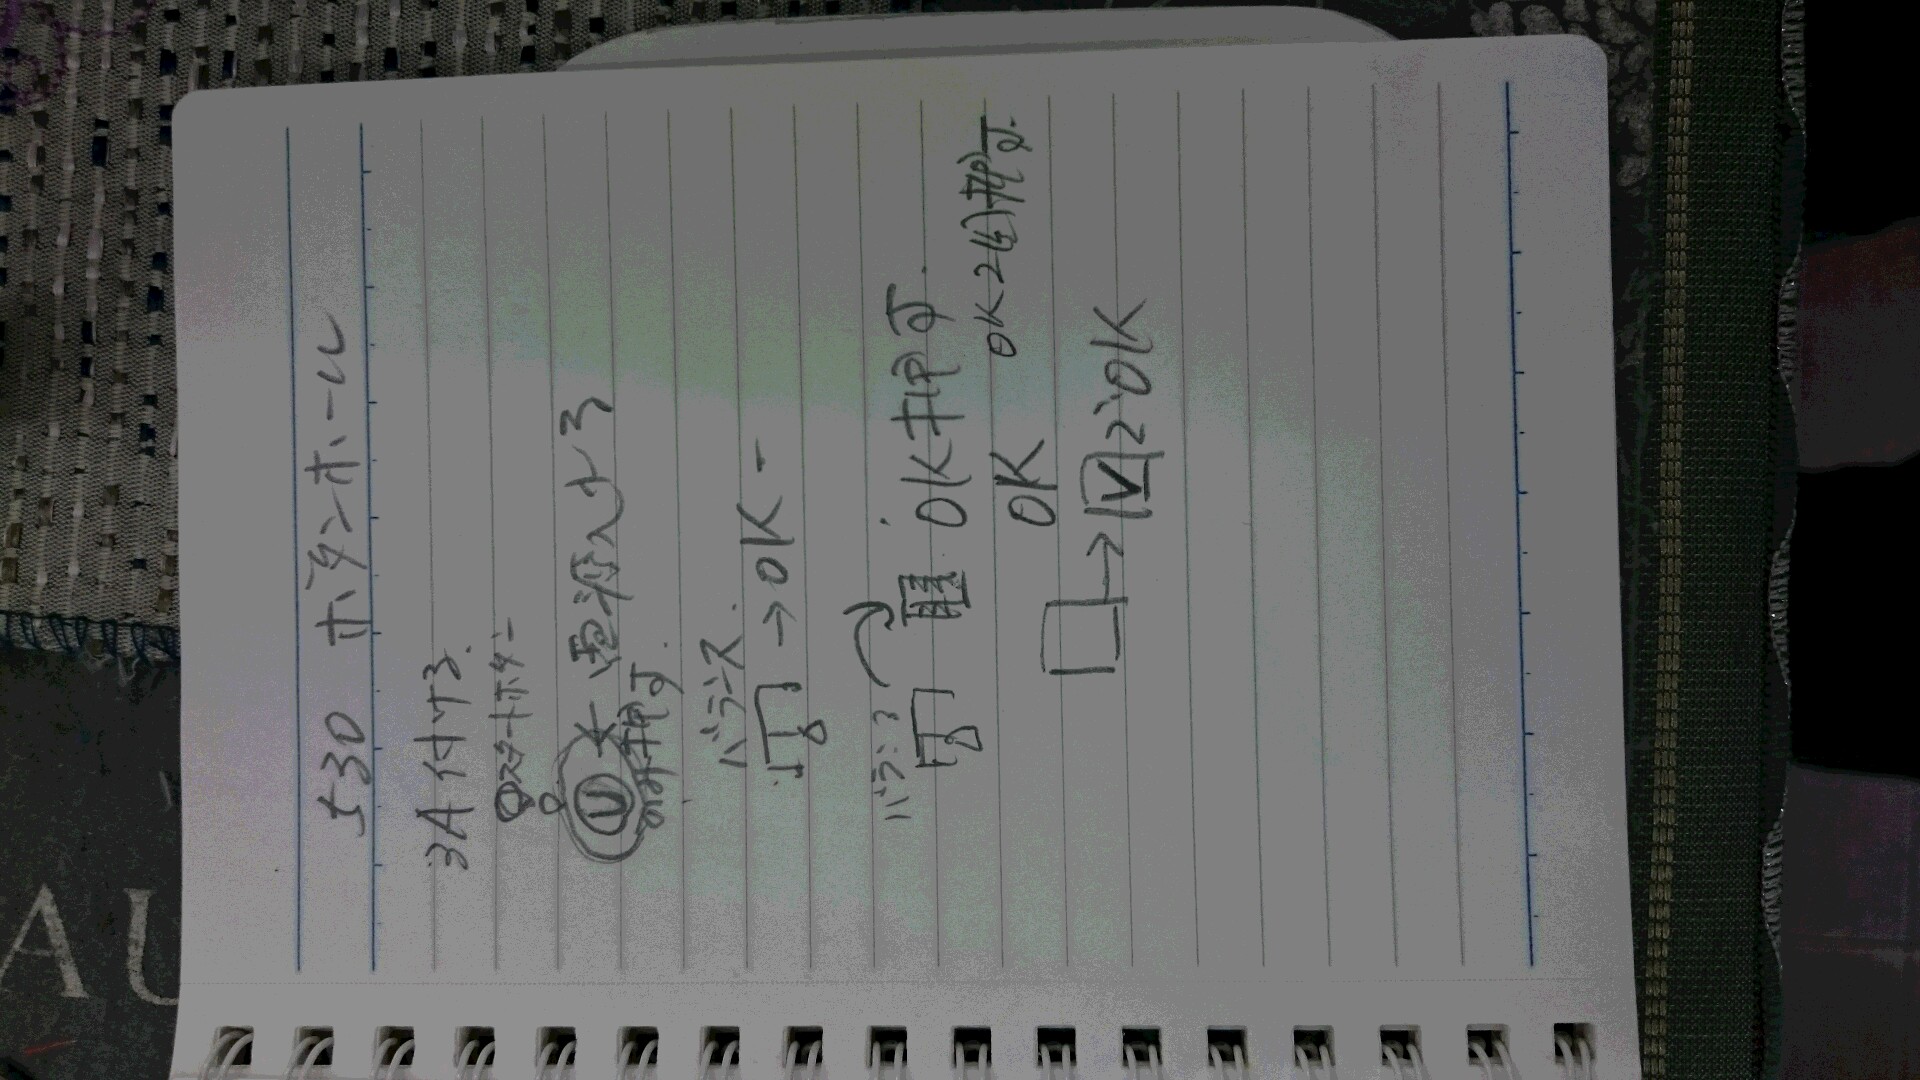 t30 ボタンホール
3A付ける.
スタートボタン
電源入れる
押す.
バランス
→OK-
バラン
OK押す.
OK OK2回押す.
→ V でOK
AU